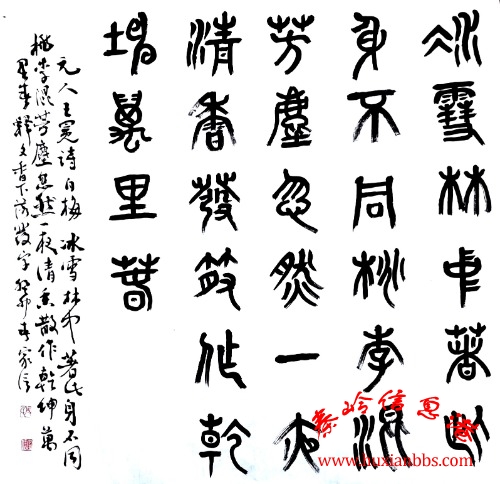 冰雪林中著此
身不同桃李混
芳塵忽然一夜
清香發散作乾
坤萬里春
元人王冕詩白梅 冰雪林中著此身不同
桃李混芳塵忽然一夜清香散作乾坤萬
里春 釋文香下落發字 癸卯年家信
www.huxianbbs.com